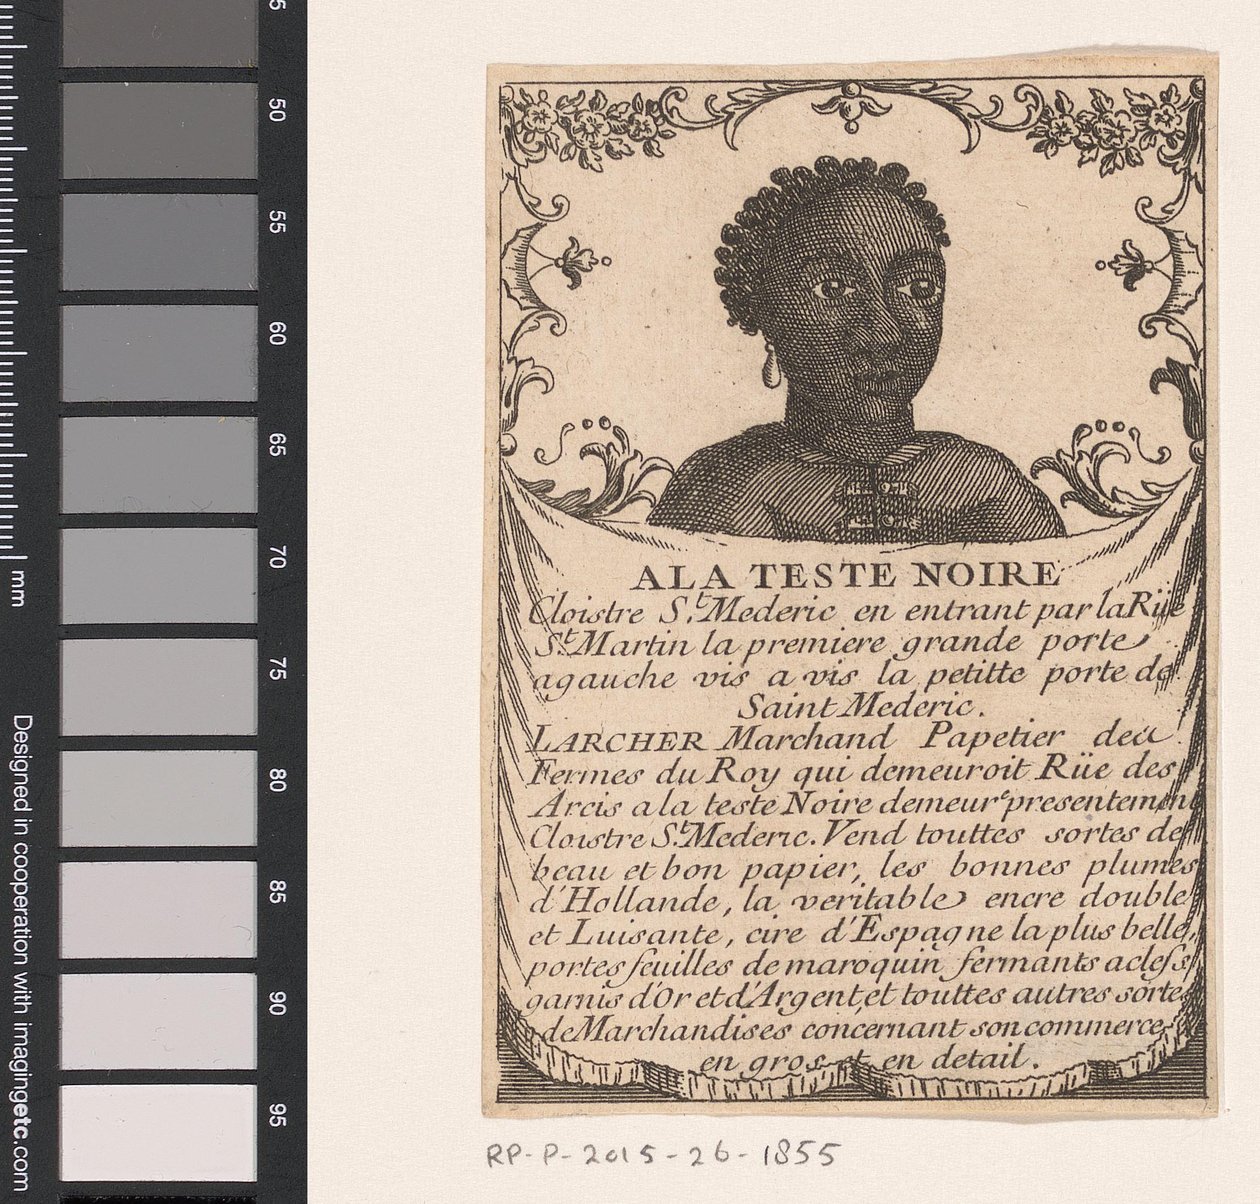 50
55
60
65
70
75
80
85
90
95
mm
Designed in cooperation with imagingetc.com
A LA TESTE NOIRE
Cloistre S.t Mederic en entrant par la Rüe
S.t Martin la premiere grande porte
agauche vis a vis la petitte porte de
Saint Mederic.
LARCHER Marchand Papetier des
Fermes du Roy qui demeuroit Rüe des
Arcis a la teste Noire demeure presentement
Cloistre S.t Mederic. Vend touttes sortes de
beau et bon papier, les bonnes plumes
d'Hollande, la veritable encre double
et Luisante, cire d'Espagne la plus belle,
portes feuilles de maroquin fermants a clefs
garnis d'Or et d'Argent, et touttes autres sorte
de Marchandises concernant son commerce
en gros et en detail.
RP-P-2015-26-1855